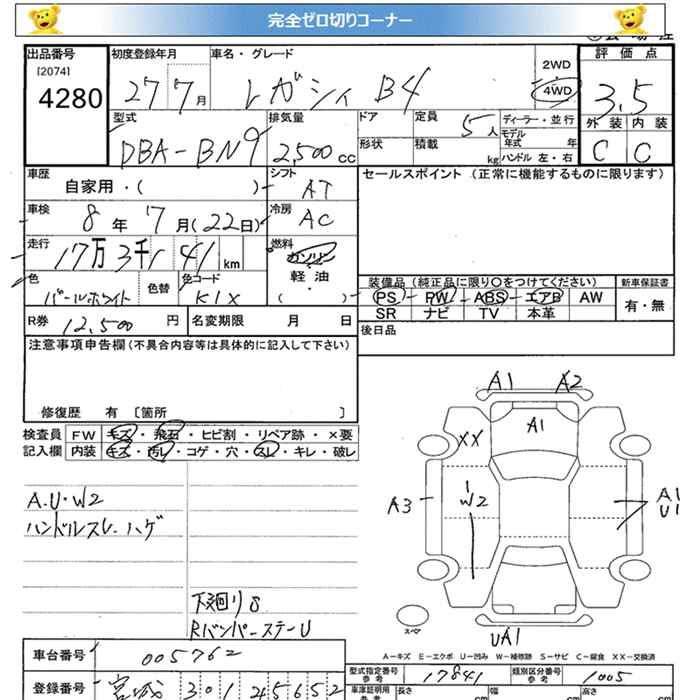 完全ゼロ切りコーナー
出品番号
[2074]
4280
初度登録年月
27 7月
車名・グレード
レガシィ B4
2WD
4WD
評価点
3.5
外装 内装
C C
型式
DBA-BN9
排気量
2,500 cc
ドア
形状
定員
5人
積載
kg
ディーラー・並行
モデル年式 年
ハンドル 左・右
車歴
自家用・( )
シフト
AT
セールスポイント (正常に機能するものに限ります)
車検
8年 7月(22日)
冷房
AC
走行
17万3千141km
燃料
ガソリン
軽・油
( )
色
パールホワイト
色替
色コード
K1X
装備品 (純正品に限り○をつけてください)
新車保証書
PS PW ABS エアB AW
SR ナビ TV 本革
有・無
R券 12,500 円
名変期限 月 日
後日品
注意事項申告欄(不具合内容等は具体的に記入して下さい)
修復歴 有 [箇所 ]
検査員記入欄
FW キズ・飛石・ヒビ割・リペア跡・×要
内装 キズ・汚レ・コゲ・穴・スレ・キレ・破レ
A.U・W2
ハンドルスレ、ハゲ
下廻りS
RバンパーステーU
A1 A2
A1
XX
W2
A3
A1
U1
スペア
UA1
A-キズ E-エクボ U-凹み W-補修跡 S-サビ C-腐食 XX-交換済
車台番号
005762
登録番号
宮城 301 4 5652
型式指定番号
参考
17841
類別区分番号
参考
1005
車庫証明用
参考
長さ
cm
幅
cm
高さ
cm